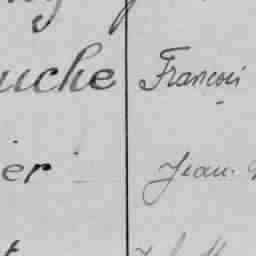 uche François
ier Jean.